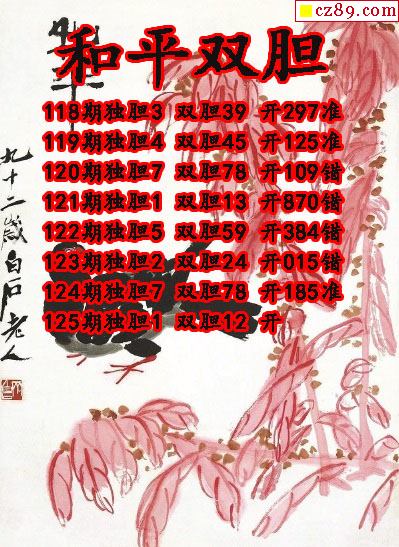 cz89.com
和平双胆
118期独胆3 双胆39 开297准
119期独胆4 双胆45 开125准
120期独胆7 双胆78 开109错
121期独胆1 双胆13 开870错
122期独胆5 双胆59 开384错
123期独胆2 双胆24 开015错
124期独胆7 双胆78 开185准
125期独胆1 双胆12 开
九十二岁白石老人